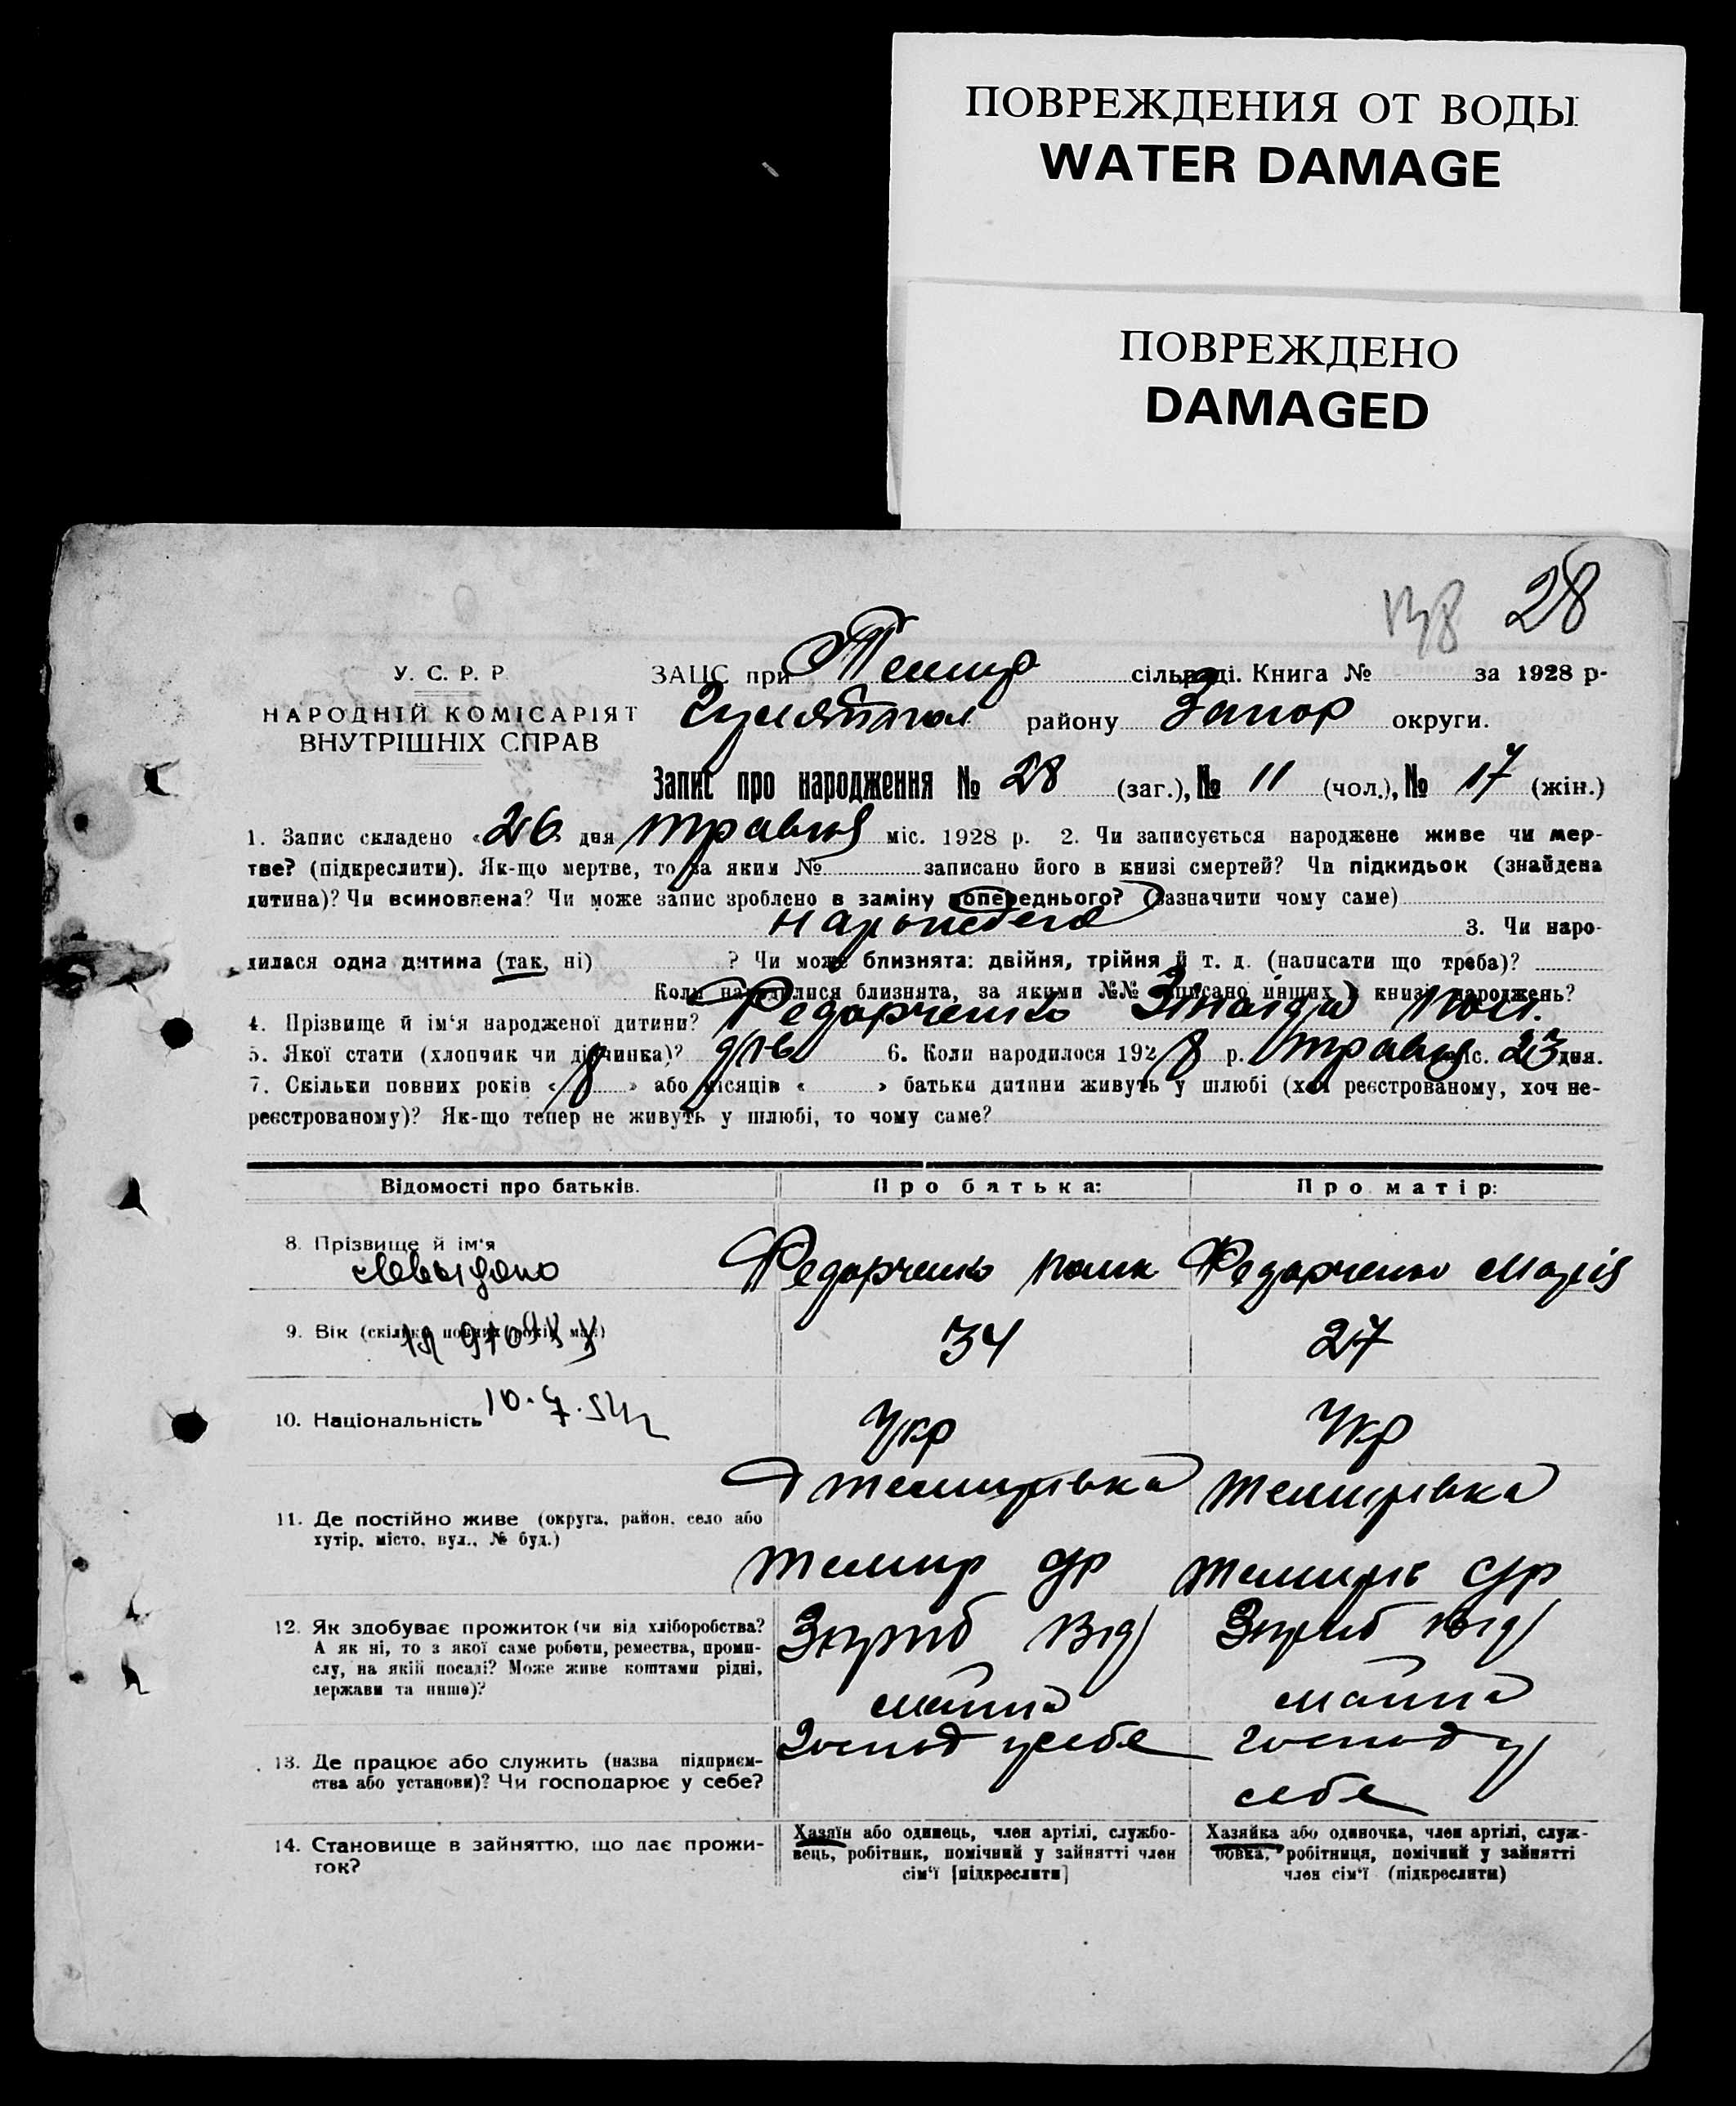 ПОВРЕЖДЕНИЯ ОТ ВОДЫ
WATER DAMAGE
ПОВРЕЖДЕНО
DAMAGED
138 28
У. С. Р. Р
НАРОДНІЙ КОМІСАРІЯТ
ВНУТРІШНІХ СПРАВ
ЗАЦС при Темир сільраді. Книга № за 1928 р-
Гуляйпол району Запор округи.
Запис про народження № 28 (заг.), № 11 (чол.), № 17 (жін.)
1. Запис складено «26» дня травня міс. 1928 р. 2. Чи записується народжене живе чи мер-
тве? (підкреслити). Як-що мертве, то за яким № записано його в книзі смертей? Чи підкидьок (знайдена
дитина)? Чи всиновлена? Чи може запис зроблено в заміну попереднього? (зазначити чому саме)
3. Чи наро-
дилася одна дитина (так, ні) ? Чи може близнята: двійня, трійня й т. д. (написати що треба)?
Коли народилися близнята, за якими №№ записано инших в книзі народжень?
4. Прізвище й ім'я народженої дитини? Федорченко Зінаїда
5. Якої стати (хлопчик чи дівчинка)? дів 6. Коли народилося 1928 р. травня міс. 23 дня.
7. Скільки повних років «8» або місяців « » батьки дитини живуть у шлюбі (хоч реєстрованому, хоч не-
реєстрованому)? Як-що тепер не живуть у шлюбі, то чому саме?
Відомості про батьків. Про батька: Про матір:
8. Прізвище й ім'я Федорченко Федорченко Марія
9. Вік (скільки повних років має) 34 27
10. Національність 10.7.54 Укр Укр
Темирівка Темирівка
11. Де постійно живе (округа, район, село або
хутір, місто, вул., № буд.)
Темир ср Темирів ср
12. Як здобуває прожиток (чи від хліборобства?
А як ні, то з якої саме роботи, ремества, проми-
слу, на якій посаді? Може живе коштами рідні,
держави та инше)?
від від
13. Де працює або служить (назва підприєм-
ства або установи)? Чи господарює у себе?
Господ у себе Господ у
себе
14. Становище в зайняттю, що дає прожи-
ток?
Хазяїн або одинець, член артілі, службо-
вець, робітник, помічний у зайнятті член
сім'ї [підкреслити]
Хазяйка або одиночка, член артілі, служ-
бовка, робітниця, помічний у зайнятті
член сім'ї (підкреслити)